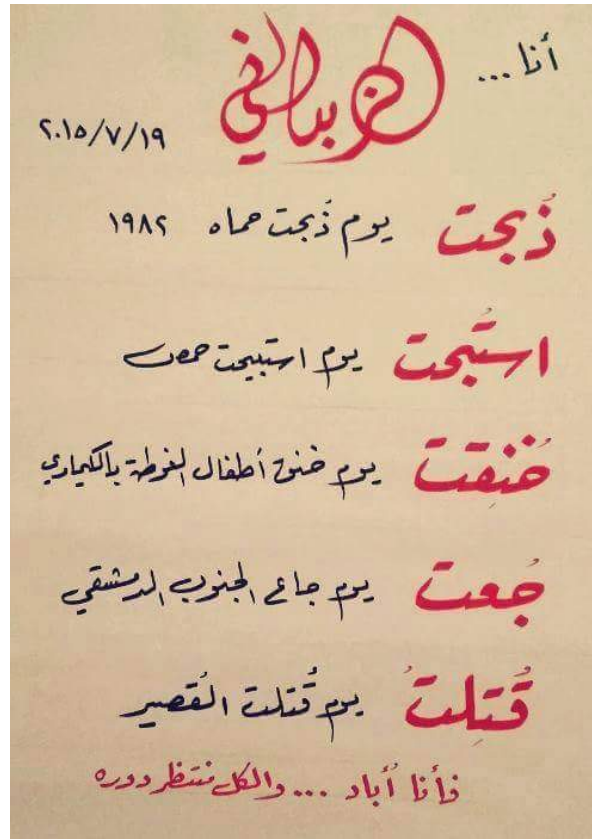 أنا ... الزبداني
٢٠١٥/٧/١٩
ذُبحت يوم ذُبحت حماه ١٩٨٢
استُبحت يوم استبيحت حمص
خُنِقت يوم خنق أطفال الغوطة بالكيماوي
جُعت يوم جاع الجنوب الدمشقي
قُتِلتُ يوم قُتلت القُصير
فأنا أُباد ... والكل منتظر دوره